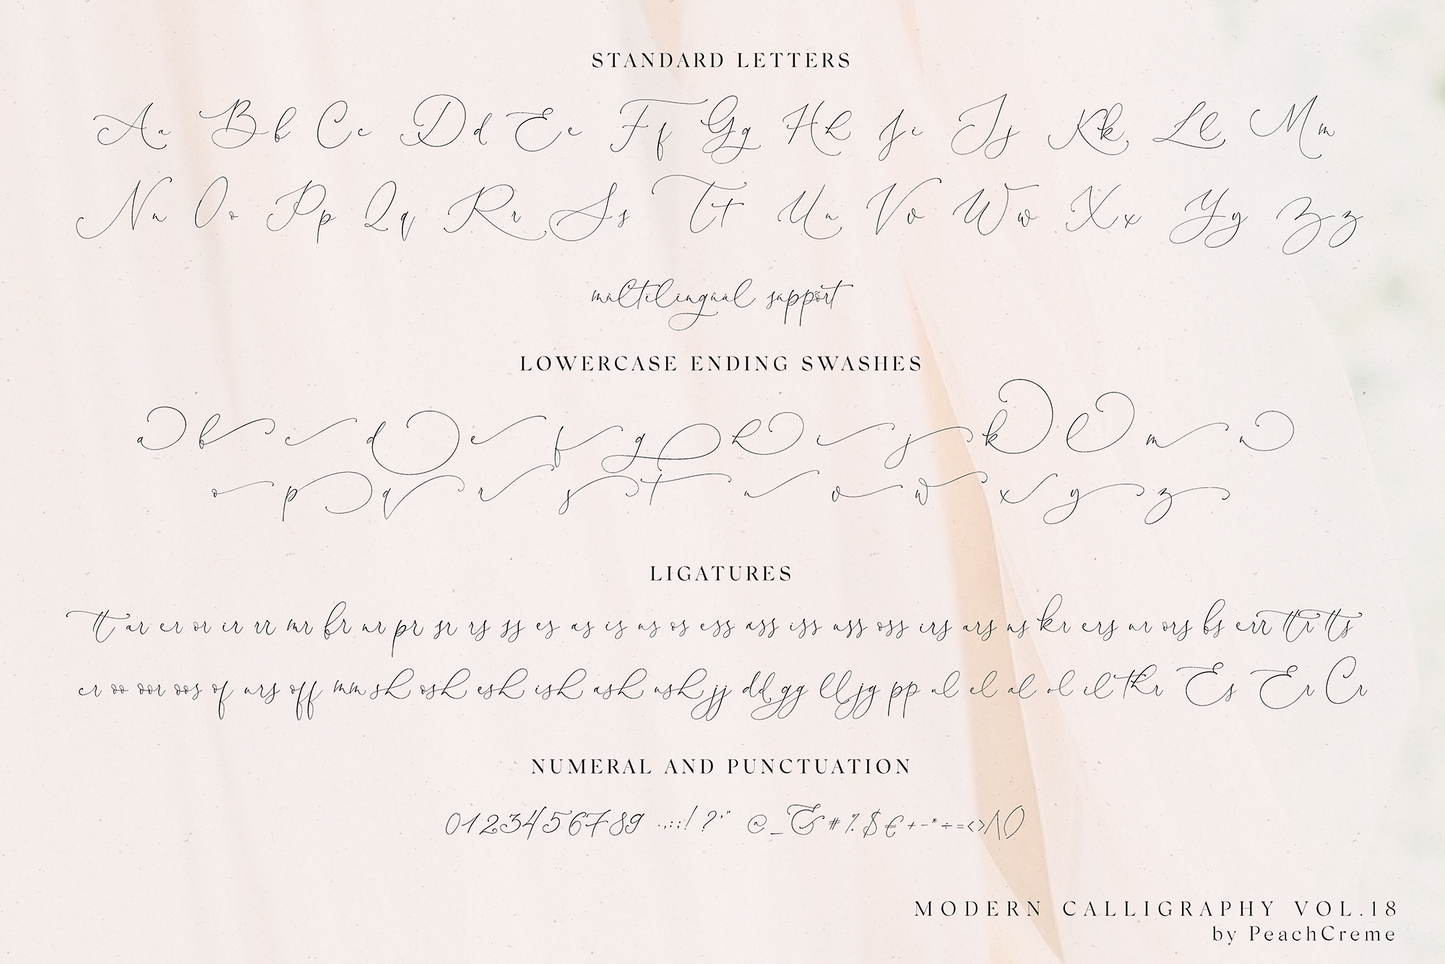 STANDARD LETTERS
Aa Bb Cc Dd Ee Ff Gg Hh Ii Jj Kk Ll Mm
Nn Oo Pp Qq Rr Ss Tt Uu Vv Ww Xx Yy Zz
multilingual support
LOWERCASE ENDING SWASHES
a b c d e f g h i j k l m n
o p q r s t u v w x y z
LIGATURES
tt ar er or ir rr mr br ur pr sr rs ss es as is us os ess ass iss uss oss irs ars us kr ers ur ors bs err ttr tts
cr oo oor oos of urs off mm sh osh esh ish ash ush jj dd gg ll jg pp ul el al ol il thr Es Er Cr
NUMERAL AND PUNCTUATION
0123456789 .,:;! ?'" @_&#%$€+-*÷=<>/\()
MODERN CALLIGRAPHY VOL.18
by PeachCreme